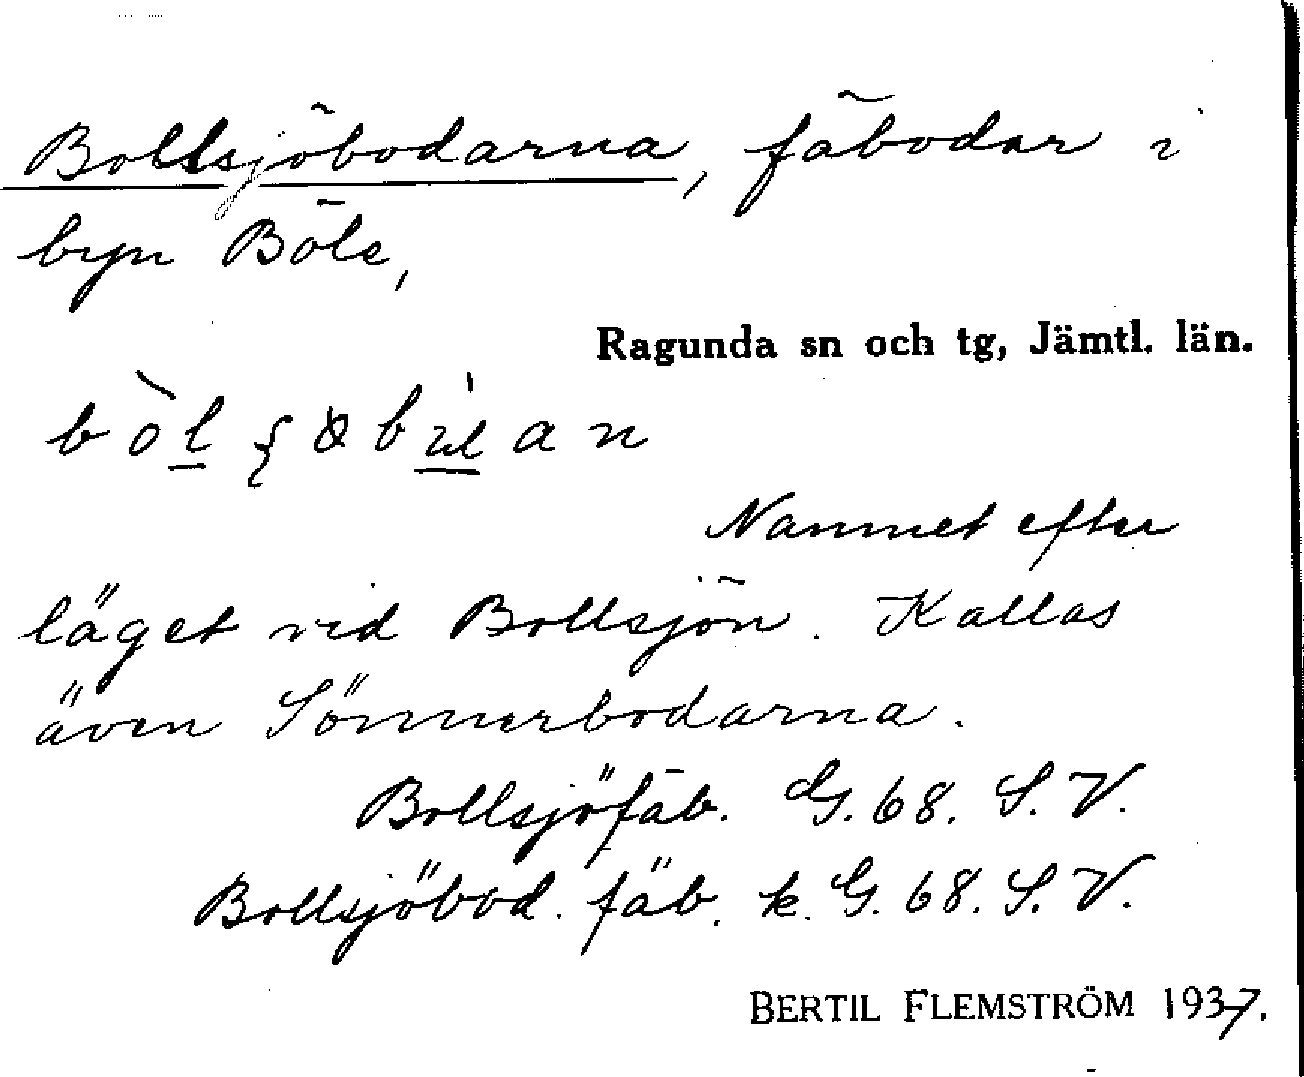 Bollsjöbodarna, fäbodar i
byn Böle,
Ragunda sn och tg, Jämtl. län.
Namnet efter
läget vid Bollsjön. Kallas
även Sönnerbodarna.
Bollsjöfäb. G. 68. S. V.
Bollsjöbod. fäb. k. G. 68. S. V.
BERTIL FLEMSTRÖM 1937.